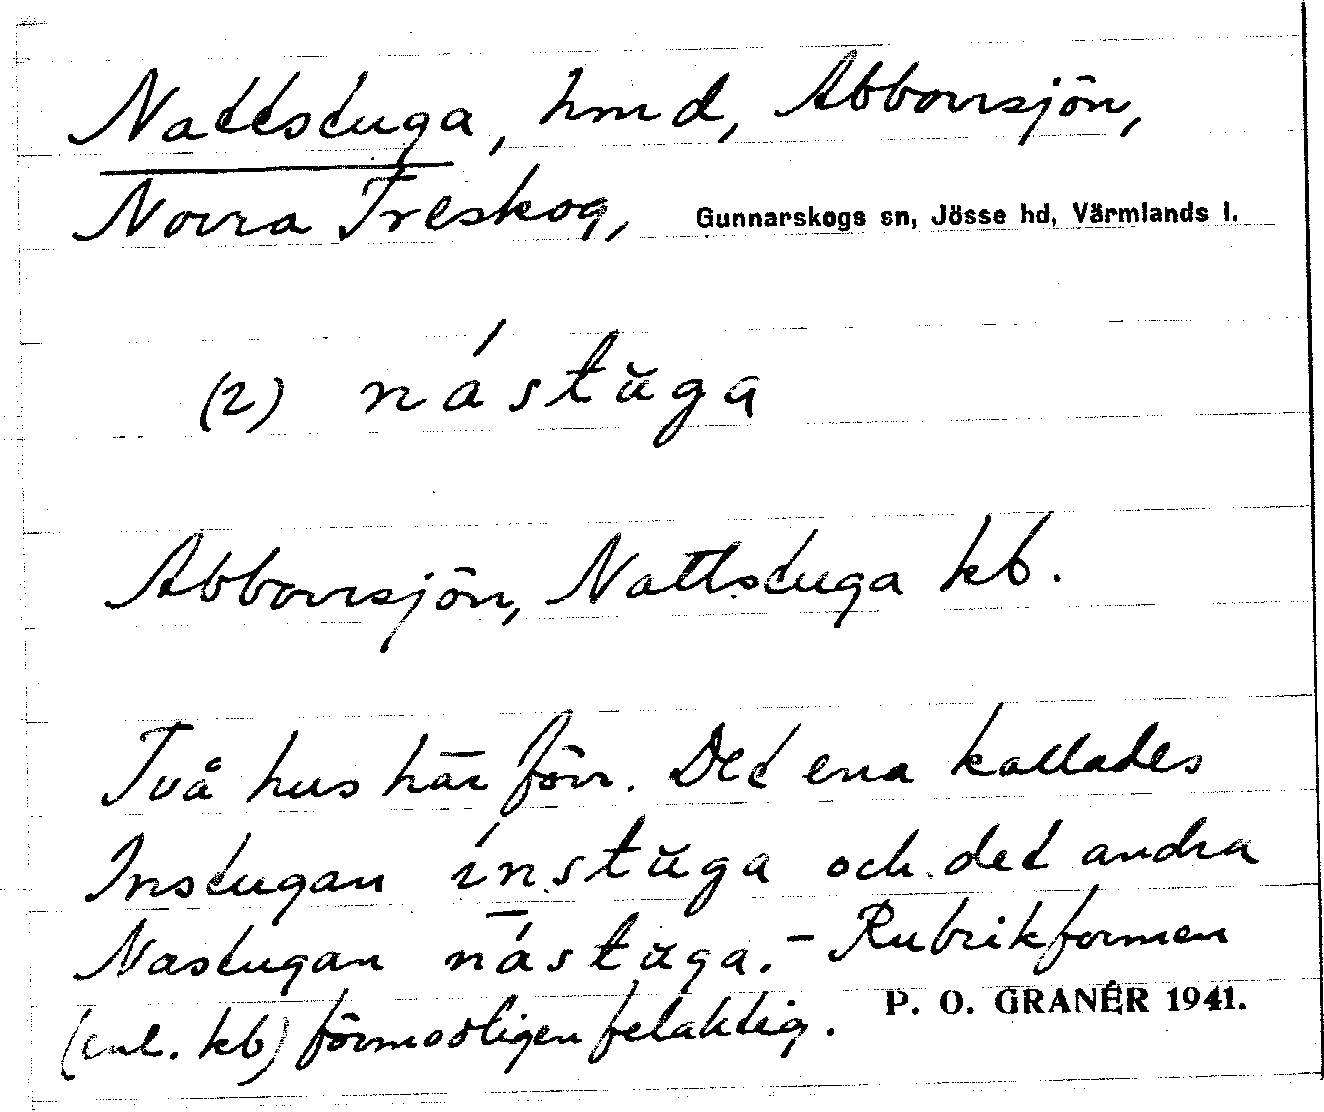 Nattstuga, hmd, Abborrsjön,
Norra Treskog, Gunnarskogs sn, Jösse hd, Värmlands l.
(2) nástŭga
Abborrsjön, Nattstuga kb.
Två hus här förr. Det ena kallades
Instugan ínstŭga och det andra
Nastugan nástŭga. – Rubrikformen
(enl. kb) förmodligen felaktig. P. O. GRANÉR 1941.